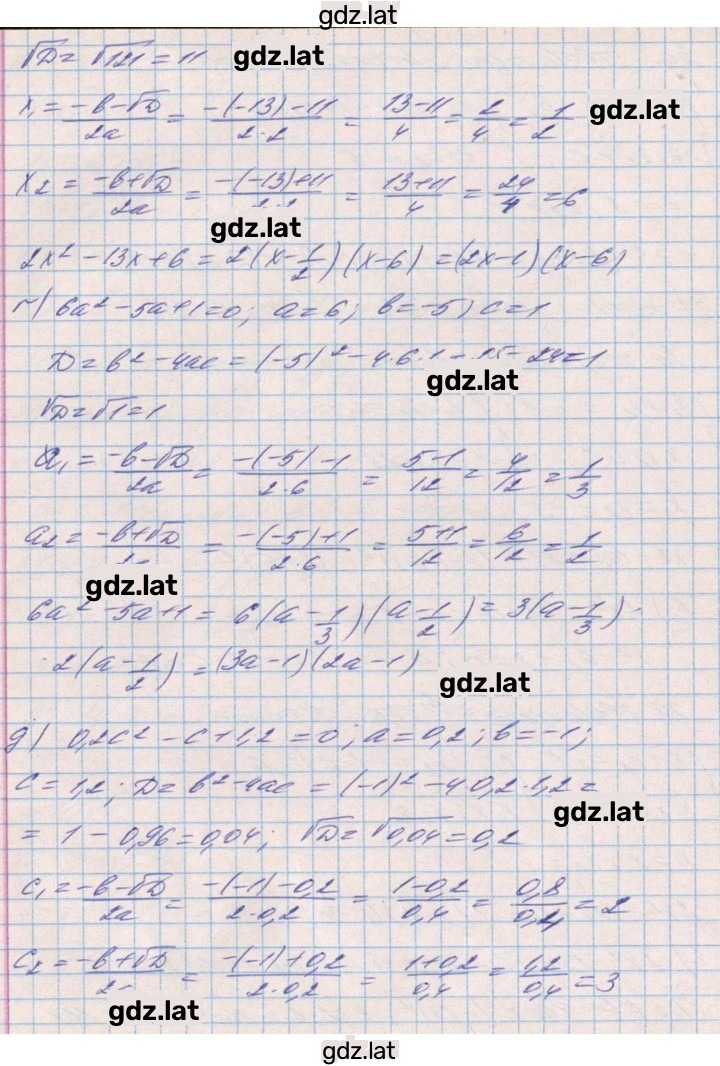 gdz.lat
√D = √121 = 11 gdz.lat
x₁ = (-b-√D)/2a = (-(-13)-11)/(2·2) = (13-11)/4 = 2/4 = 1/2 gdz.lat
x₂ = (-b+√D)/2a = (-(-13)+11)/(2·2) = (13+11)/4 = 24/4 = 6
gdz.lat
2x² - 13x + 6 = 2(x - 1/2)(x - 6) = (2x-1)(x-6)
г) 6a² - 5a + 1 = 0; a = 6; b = -5; c = 1
D = b² - 4ac = (-5)² - 4·6·1 = 25 - 24 = 1
gdz.lat
√D = √1 = 1
a₁ = (-b-√D)/2a = (-(-5)-1)/(2·6) = (5-1)/12 = 4/12 = 1/3
a₂ = (-b+√D)/2a = (-(-5)+1)/(2·6) = (5+1)/12 = 6/12 = 1/2
gdz.lat
6a² - 5a + 1 = 6(a - 1/3)(a - 1/2) = 3(a - 1/3) ·
· 2(a - 1/2) = (3a-1)(2a-1)
gdz.lat
д) 0,2c² - c + 1,2 = 0; a = 0,2; b = -1;
c = 1,2; D = b² - 4ac = (-1)² - 4·0,2·1,2 =
gdz.lat
= 1 - 0,96 = 0,04; √D = √0,04 = 0,2
c₁ = (-b-√D)/2a = (-(-1)-0,2)/(2·0,2) = (1-0,2)/0,4 = 0,8/0,4 = 2
c₂ = (-b+√D)/2a = (-(-1)+0,2)/(2·0,2) = (1+0,2)/0,4 = 1,2/0,4 = 3
gdz.lat
gdz.lat